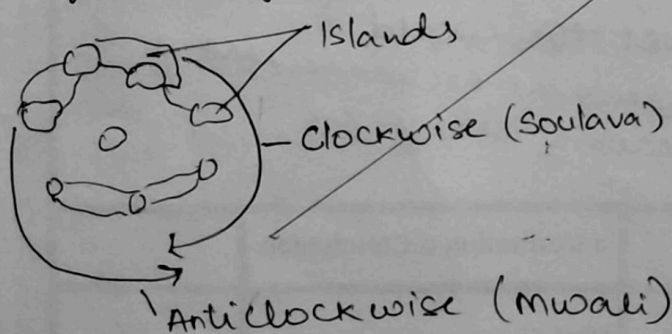 Islands
Clockwise (Soulava)
Anticlockwise (Mwali)